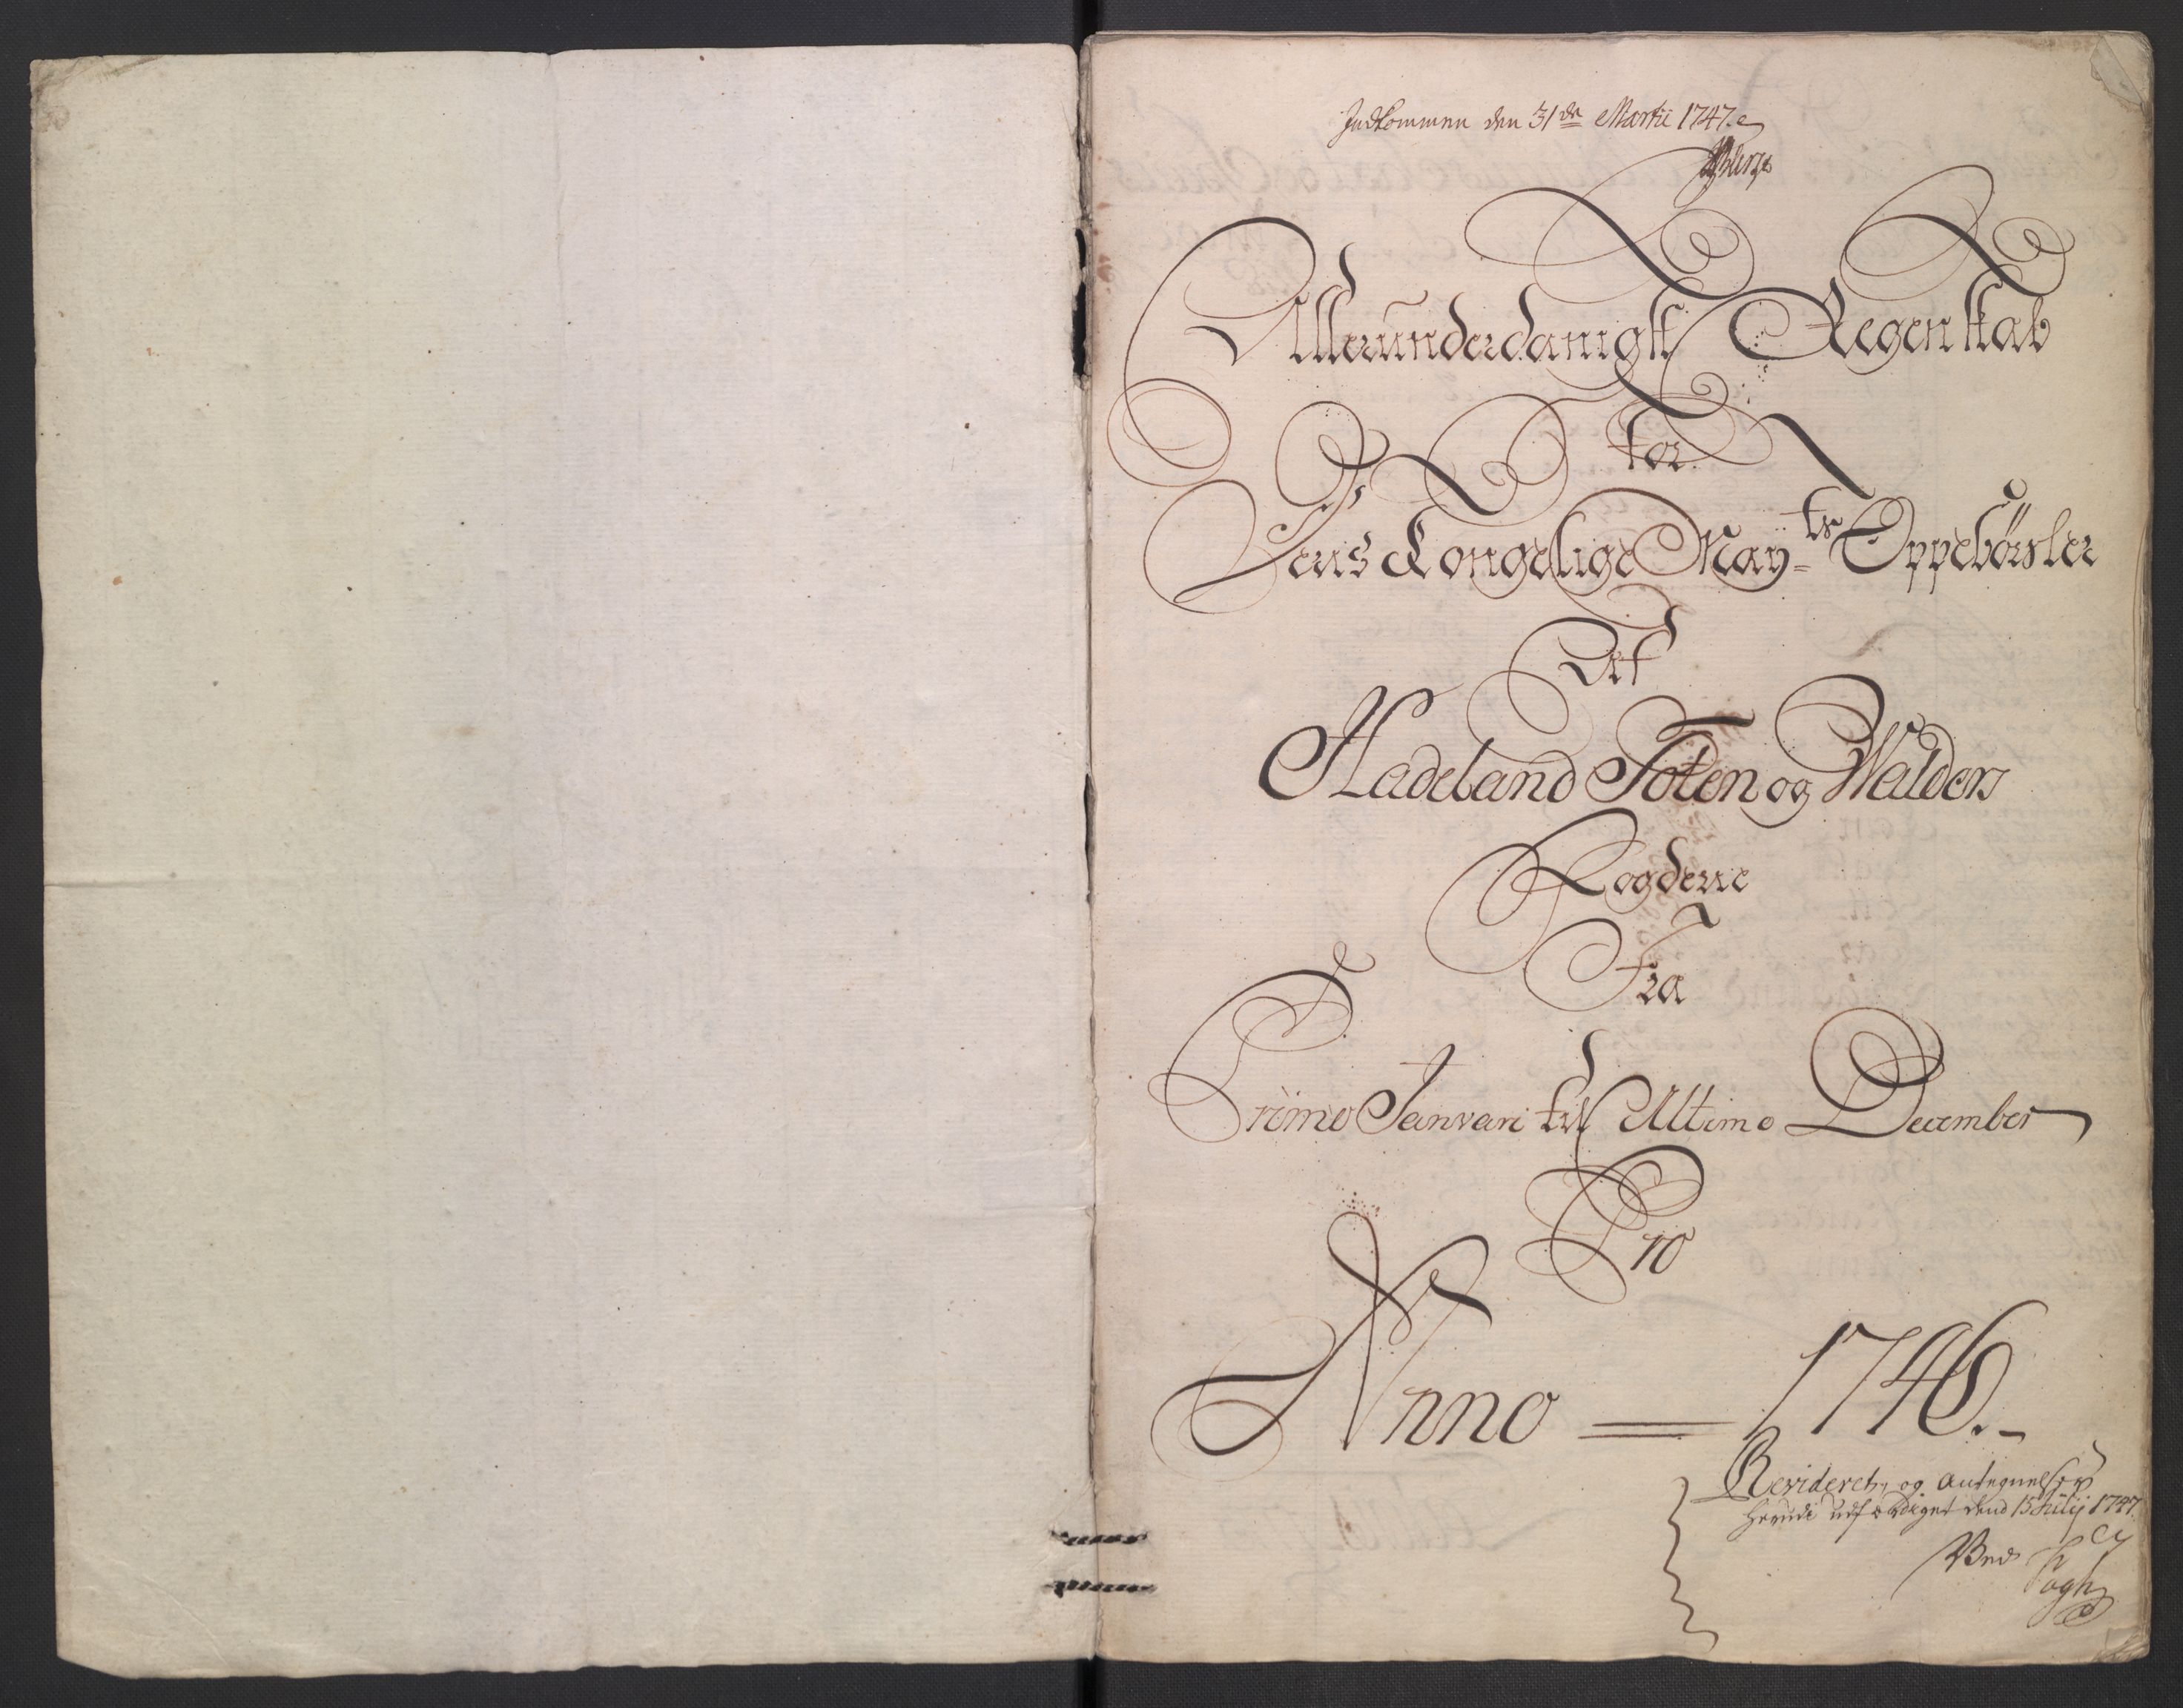 Indkommen den 31de Martii 1747.
Allerunderdanigst Regenskab
for
Deris Kongelige Mayts Oppebørsler
Af
Hadeland Toten og Walders
Fogderie
Fra
Primo Januari til Ultimo December
Pro
Anno = 1746.-
Revideret, og Antegnelser
herudi udfærdiget dend 15 Julij 1747
Ved